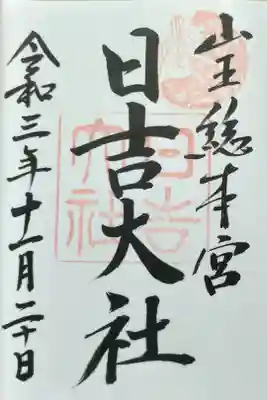 山王総本宮
日吉大社
令和三年十一月二十日
日吉大社